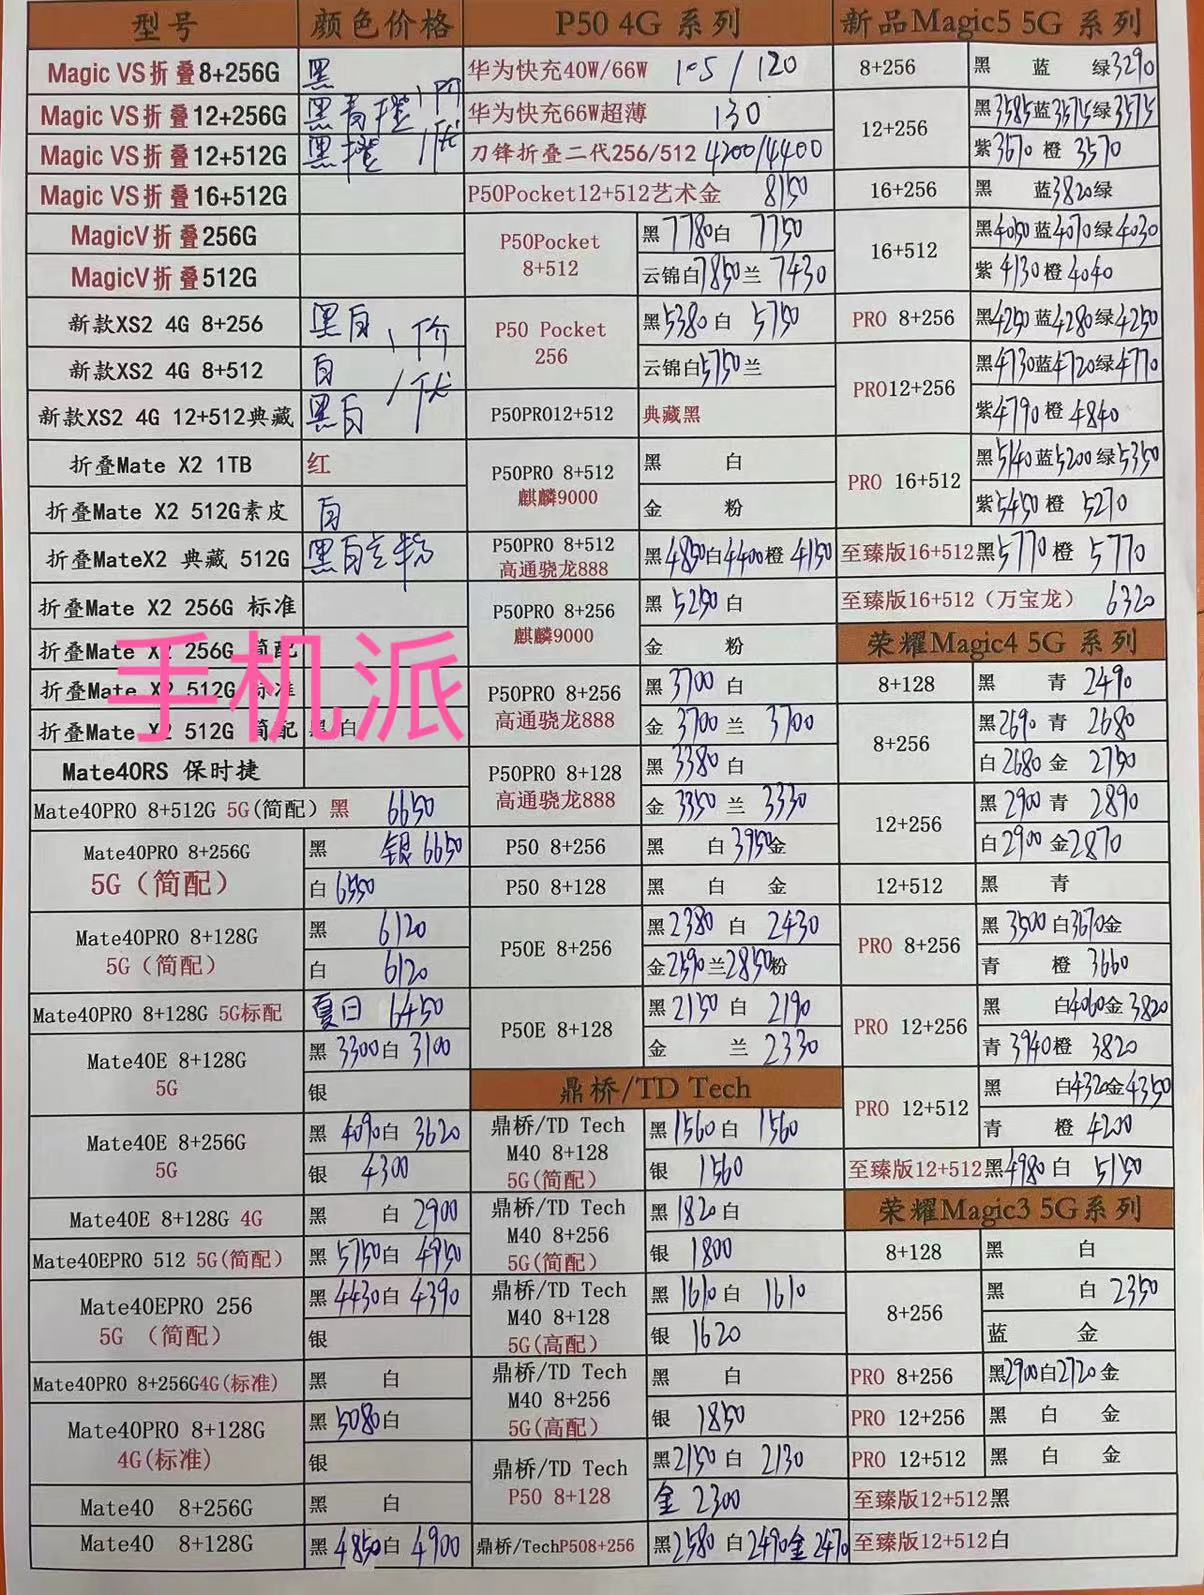 型号 颜色价格
Magic VS折叠8+256G 黑
Magic VS折叠12+256G 黑青橙
Magic VS折叠12+512G 黑橙
Magic VS折叠16+512G
MagicV折叠256G
MagicV折叠512G
新款XS2 4G 8+256 黑白
新款XS2 4G 8+512 白
新款XS2 4G 12+512典藏 黑白
折叠Mate X2 1TB 红
折叠Mate X2 512G素皮 白
折叠MateX2 典藏 512G 黑白 粉
折叠Mate X2 256G 标准
折叠Mate X2 256G 简配
折叠Mate X2 512G 标准
折叠Mate X2 512G 简配 黑 白
手机派
Mate40RS 保时捷
Mate40PRO 8+512G 5G(简配) 黑 6650
Mate40PRO 8+256G
5G（简配）
黑 银 6650
白 6550
Mate40PRO 8+128G
5G（简配）
黑 6120
白 6120
Mate40PRO 8+128G 5G标配 夏日 6450
Mate40E 8+128G
5G
黑 3300 白 3100
银
Mate40E 8+256G
5G
黑 4090 白 3620
银 4300
Mate40E 8+128G 4G 黑 白 2900
Mate40EPRO 512 5G(简配) 黑 5750 白 4950
Mate40EPRO 256
5G （简配）
黑 4430 白 4390
银
Mate40PRO 8+256G4G(标准) 黑 白
Mate40PRO 8+128G
4G(标准)
黑 5080 白
银
Mate40 8+256G 黑 白
Mate40 8+128G 黑 4850 白 4900
P50 4G 系列
华为快充40W/66W 105/120
华为快充66W超薄 130
刀锋折叠二代256/512 4200/4400
P50Pocket12+512艺术金 8150
P50Pocket
8+512
黑 7780 白 7750
云锦白 7850 兰 7430
P50 Pocket
256
黑 5380 白 5750
云锦白 5750 兰
P50PRO12+512 典藏黑
P50PRO 8+512
麒麟9000
黑 白
金 粉
P50PRO 8+512
高通骁龙888
黑 4850 白 4400 橙 4150
P50PRO 8+256
麒麟9000
黑 5250 白
金 粉
P50PRO 8+256
高通骁龙888
黑 3700 白
金 3700 兰 3700
P50PRO 8+128
高通骁龙888
黑 3380 白
金 3350 兰 3330
P50 8+256 黑 白 3950 金
P50 8+128 黑 白 金
P50E 8+256
黑 2380 白 2430
金 2590 兰 2850 粉
P50E 8+128
黑 2150 白 2190
金 兰 2330
鼎桥/TD Tech
鼎桥/TD Tech
M40 8+128
5G(简配)
黑 1560 白 1560
银 1560
鼎桥/TD Tech
M40 8+256
5G(简配)
黑 1820 白
银 1800
鼎桥/TD Tech
M40 8+128
5G(高配)
黑 1610 白 1610
银 1620
鼎桥/TD Tech
M40 8+256
5G(高配)
黑 白
银 1850
鼎桥/TD Tech
P50 8+128
黑 2150 白 2130
金 2300
鼎桥/TechP508+256 黑 2580 白 2490 金 2470
新品Magic5 5G 系列
8+256 黑 蓝 绿 3290
12+256
黑 3585 蓝 3575 绿 3575
紫 3670 橙 3570
16+256 黑 蓝 3820 绿
16+512
黑 4050 蓝 4070 绿 4030
紫 4130 橙 4040
PRO 8+256 黑 4250 蓝 4280 绿 4250
PRO12+256
黑 4730 蓝 4720 绿 4770
紫 4790 橙 4840
PRO 16+512
黑 5140 蓝 5200 绿 5350
紫 5450 橙 5270
至臻版16+512 黑 5770 橙 5770
至臻版16+512（万宝龙） 6320
荣耀Magic4 5G 系列
8+128 黑 青 2490
8+256
黑 2690 青 2680
白 2680 金 2750
12+256
黑 2900 青 2890
白 2900 金 2870
12+512 黑 青
PRO 8+256
黑 3500 白 3670 金
青 橙 3660
PRO 12+256
黑 白 4060 金 3820
青 3940 橙 3820
PRO 12+512
黑 白 4320 金 4350
青 橙 4200
至臻版12+512 黑 4980 白 5150
荣耀Magic3 5G系列
8+128 黑 白
8+256
黑 白 2350
蓝 金
PRO 8+256 黑 2900 白 2720 金
PRO 12+256 黑 白 金
PRO 12+512 黑 白 金
至臻版12+512 黑
至臻版12+512 白